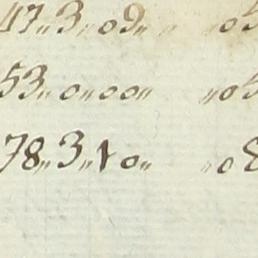 47„3„09„ „05
53„0„00„ „05
78„3„10„ „08